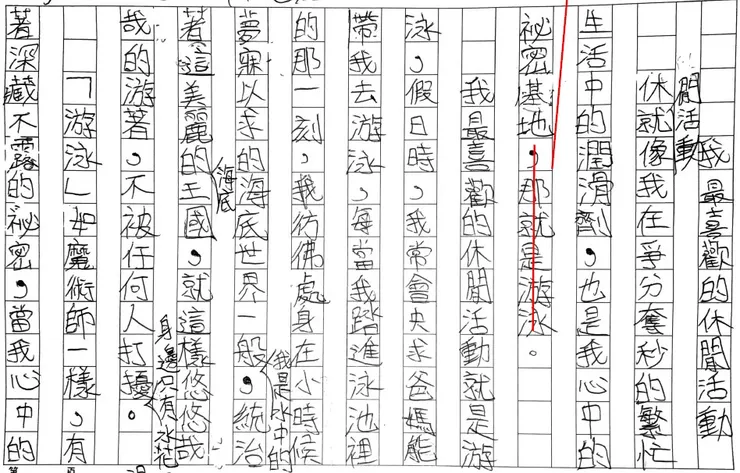 我最喜歡的休閒活動
休閒活動就像我在爭分奪秒的繁忙
生活中的潤滑劑，也是我心中的
祕密基地，那就是游泳。
我最喜歡的休閒活動就是游
泳，假日時，我常會央求爸媽能
帶我去游泳，每當我踏進泳池裡
的那一刻，我彷彿處身在小時候
夢寐以求的海底世界一般，我是水中的統治
著這美麗的海底王國，就這樣悠悠哉
哉的游著，不被任何人打擾。身邊只有水花
「游泳」如魔術師一樣，有
著深藏不露的祕密，當我心中的